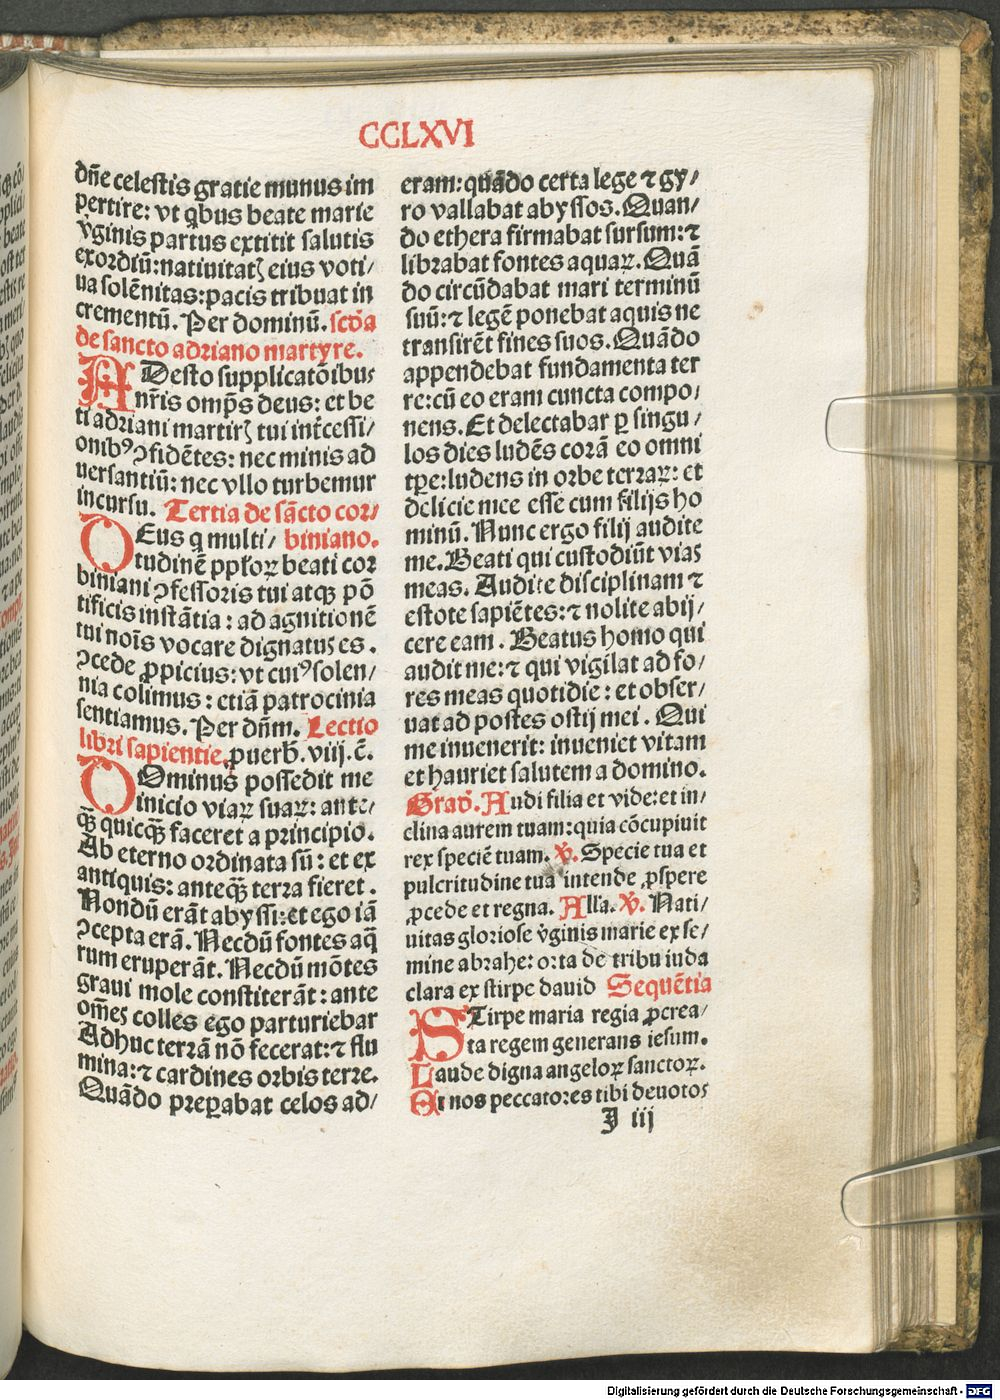 CCLXVI
dñe celestis gratie munus im
pertire: vt qͥbus beate marie
v̓ginis partus extitit salutis
exordiũ: natiuitatꝫ eius voti/
ua solẽnitas: pacis tribuat in
crementũ. Per dominũ. scďa
de sancto adriano martyre.
ADesto supplicatõibus
nr̃is omp̃s deus: et be
ti adriani martirꝫ tui int̓cessi/
onibꝰ ꝯfidẽtes: nec minis ad
uersantiũ: nec vllo turbemur
incursu. Tertia de sãcto cor/
DEus q multi/ biniano.
tudinẽ ppl̓oꝝ beati cor
biniani ꝯfessoris tui atqꝫ põ
tificis instãtia: ad agnitionẽ
tui nois̃ vocare dignatus es.
ꝯcede ꝓpicius: vt cuiꝰ solen/
nia colimus: etiã patrocinia
sentiamus. Per dñm. Lectio
libri sapientie. ꝓuerb̃. viij. c̃.
DOminus possedit me
inicio viaꝝ suaꝝ: ante/
qꝫ̃ quicqꝫ̃ faceret a principio.
Ab eterno ordinata sũ: et ex
antiquis: anteqꝫ̃ terra fieret.
Nondũ erãt abyssi: et ego iã
ꝯcepta erã. Necdũ fontes aq̃
rum eruperãt. Necdũ mõtes
graui mole constiterãt: ante
om̃es colles ego parturiebar
Adhuc terrã nõ fecerat: ⁊ flu
mina: ⁊ cardines orbis terre.
Quãdo preꝑabat celos ad/
eram: quãdo certa lege ⁊ gy/
ro vallabat abyssos. Quan/
do ethera firmabat sursum: ⁊
librabat fontes aquaꝝ. Quã
do circũdabat mari terminũ
suũ: ⁊ legẽ ponebat aquis ne
transirẽt fines suos. Quãdo
appendebat fundamenta ter
re: cũ eo eram cuncta compo/
nens. Et delectabar ꝑ singu/
los dies ludẽs corã eo omni
tꝑe: ludens in orbe terraꝝ: et
delicie mee esse cum filijs ho
minũ. Nunc ergo filij audite
me. Beati qui custodiũt vias
meas. Audite disciplinam ⁊
estote sapiẽtes: ⁊ nolite abij/
cere eam. Beatus homo qui
audit me: ⁊ qui vigilat ad fo/
res meas quotidie: et obser/
uat ad postes ostij mei. Qui
me inuenerit: inueniet vitam
et hauriet salutem a domino.
Graď. Audi filia et vide: et in/
clina aurem tuam: quia cõcupiuit
rex speciẽ tuam. ℣. Specie tua et
pulcritudine tua intende ꝓspere
ꝓcede et regna. Alla. ℣. Nati/
uitas gloriose v̓ginis marie ex se/
mine abrahe: orta de tribu iuda
clara ex stirpe dauid Sequẽtia
STirpe maria regia ꝓcrea/
ta regem generans iesum.
Laude digna angeloꝝ sanctoꝝ.
Et nos peccatores tibi deuotos
J iij
Digitalisierung gefördert durch die Deutsche Forschungsgemeinschaft - DFG